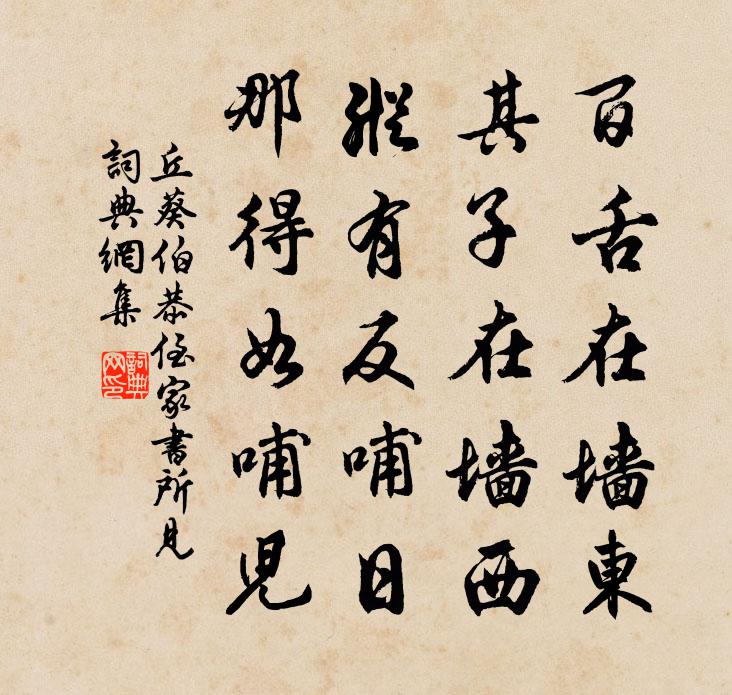 百舌在墙東
其子在墙西
縱有反哺日
那得如哺児
丘葵伯恭侄家書所見
詞典網集
詞典网印